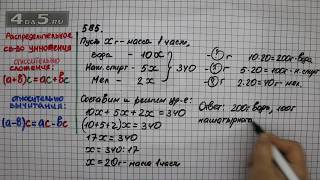 4da5.RU
Распределительное
св-во умножения
относительно
сложения:
(a+b)c=ac+bc
относительно
вычитания:
(a-b)c=ac-bc
585.
Пусть x г - масса 1 части,
Вода - 10x
Наш. спирт - 5x
Мел - 2x
340
10·20=200г - вода
5·20=100г - н. спирт
2·20=40г - мел.
Составим и решим ур-е:
10x+5x+2x=340
(10+5+2)x=340
17x=340
x=340:17
x=20г - масса 1 части
Ответ: 200г воды, 100г
нашатырного